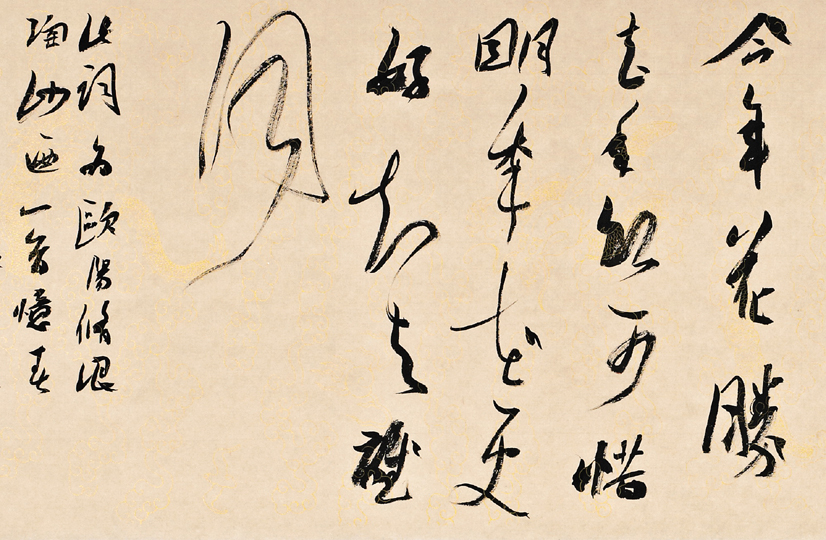 今年花勝
去年紅可惜
明年花更
好知与誰
同
此詞為歐陽脩浪
淘沙一首憶